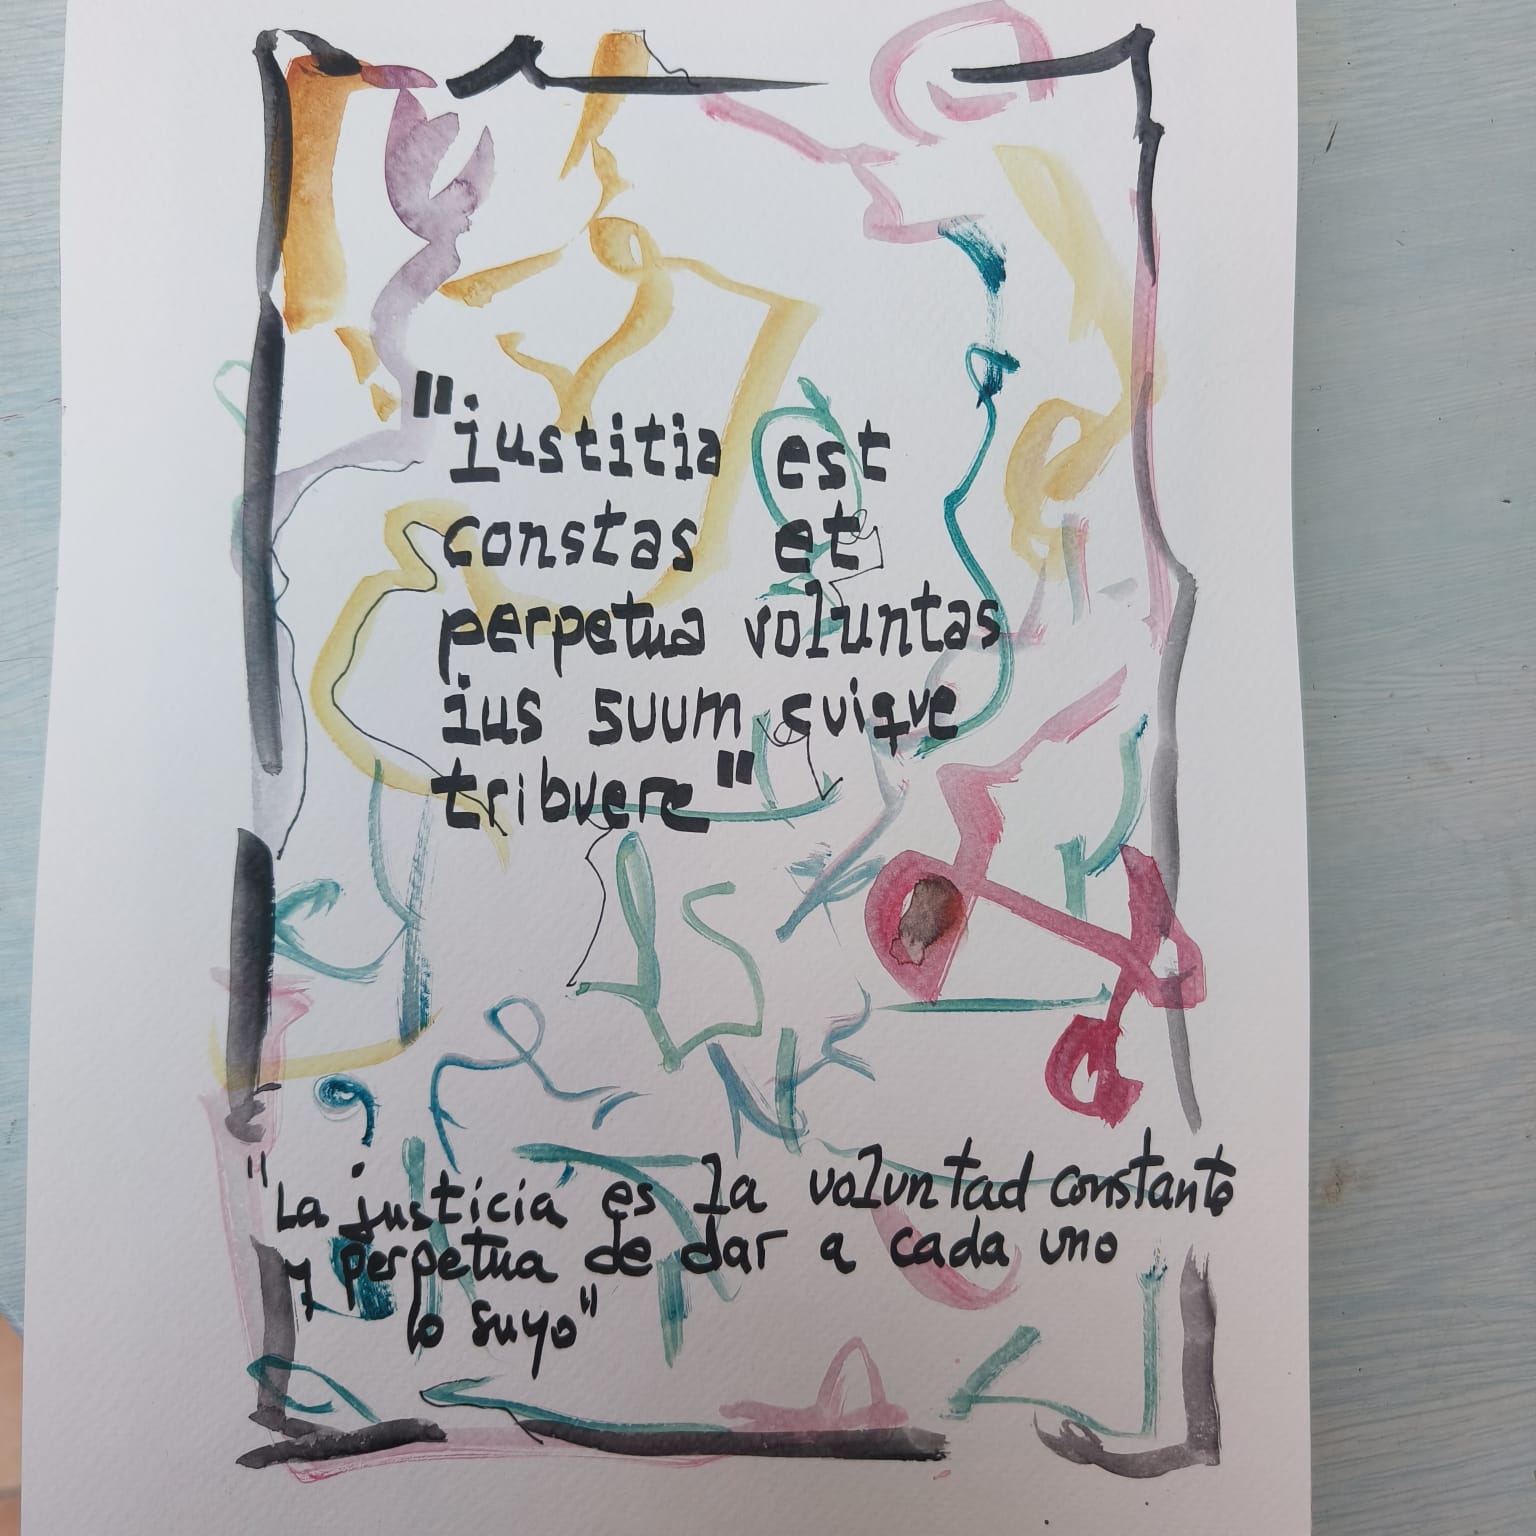 "iustitia est
constas et
perpetua voluntas
ius suum cuique
tribuere"
"La justicia es la voluntad constante
y perpetua de dar a cada uno
lo suyo"